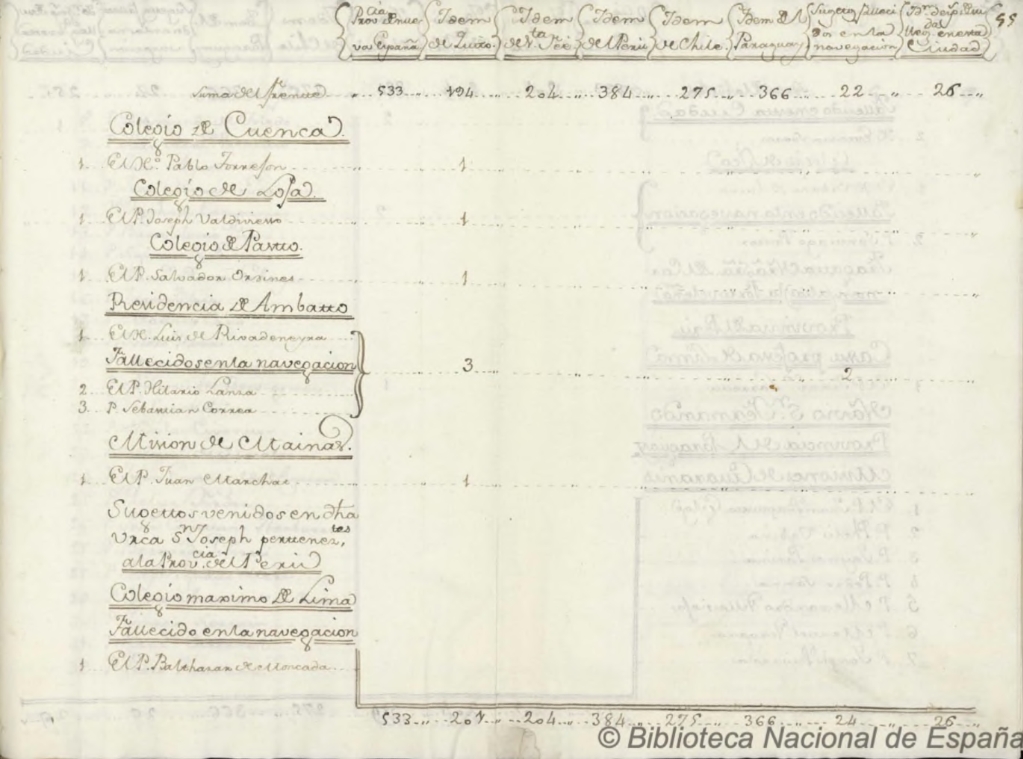 Prov.cia de nue
va España
Idem
de Quito
Idem
de S.ta Fee
Idem
del Perú
Idem
de Chile
Idem del
Paraguay
Sugetos falleci
dos en la
navegacion
Id.m despues de su
lleg.da en esta
Ciudad
95
Suma del frente 533 194 204 384 275 366 22 26
Colegio de Cuenca
1. El H.º Pablo Torrejon 1
Colegio de Loja
1. El P. Joseph Valdivieso 1
Colegio de Pasto
1. El P. Salvador Orsinas 1
Residencia de Ambatto
1. El H. Luis de Rivadeneyra
Fallecidos en la navegacion 3 2
2. El P. Hilario Lanza
3. P. Sebastian Correa
Mision de Mainas
1. El P. Juan Marchat 1
Sugetos venidos en dha
Urca S.n Joseph pertenez.tes
a la Prov.cia del Perú
Colegio maximo de Lima
Fallecido en la navegacion
1. El P. Balthasar de Moncada
533 201 204 384 275 366 24 26
© Biblioteca Nacional de España